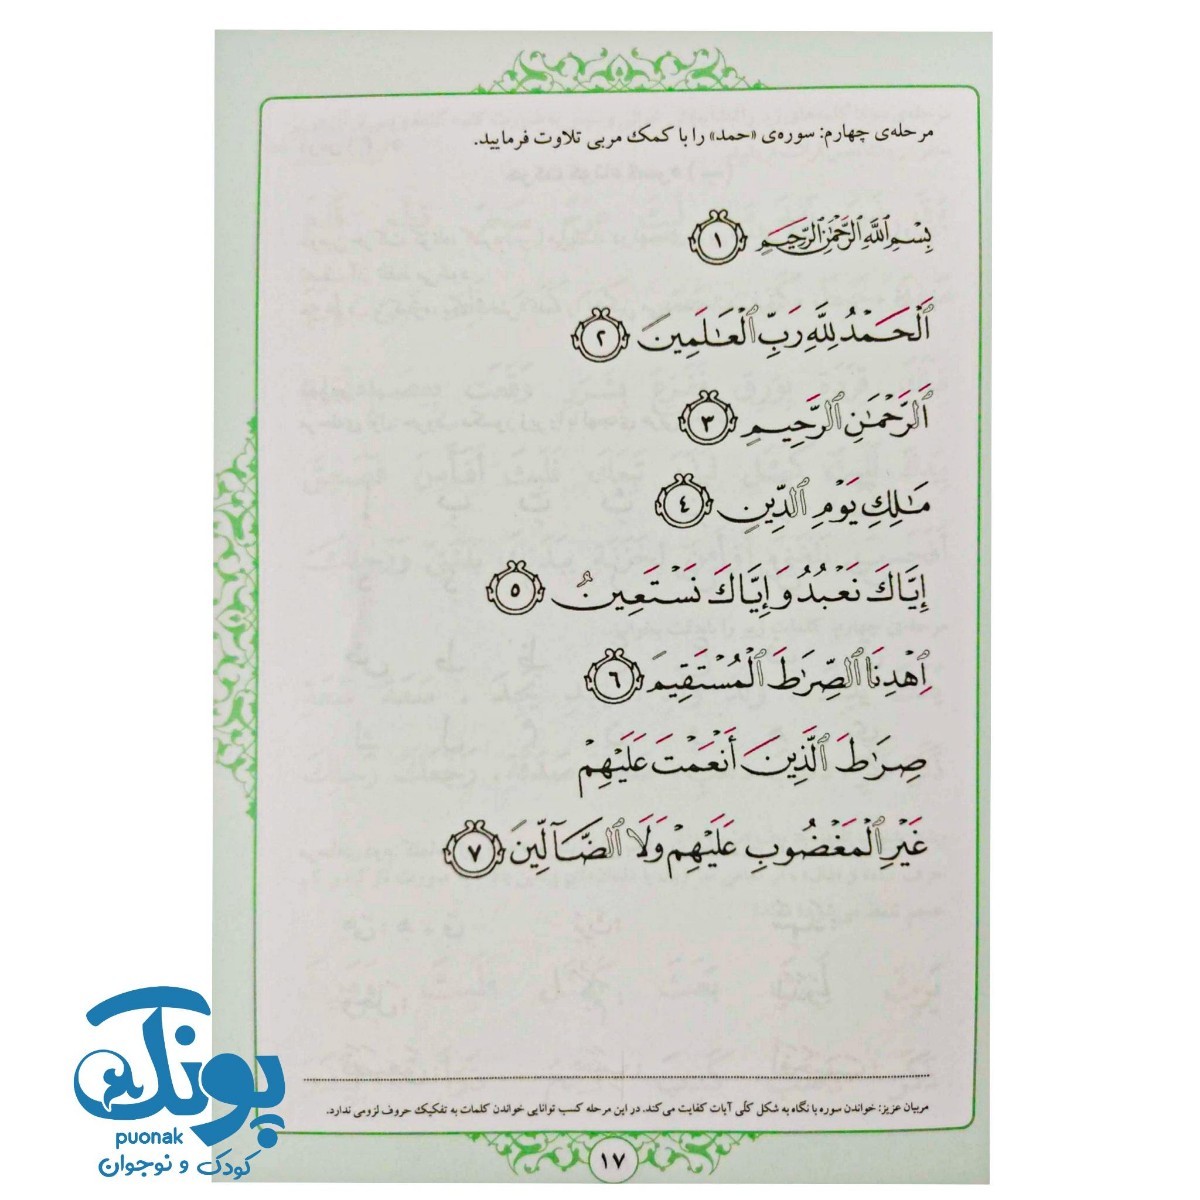 مرحله‌ی چهارم: سوره‌ی «حمد» را با کمک مربی تلاوت فرمایید.
بِسْمِ ٱللَّهِ ٱلرَّحْمَٰنِ ٱلرَّحِيمِ ١
اَلْحَمْدُ لِلَّهِ رَبِّ ٱلْعَالَمِينَ ٢
اَلرَّحْمَٰنِ ٱلرَّحِيمِ ٣
مَالِكِ يَوْمِ ٱلدِّينِ ٤
إِيَّاكَ نَعْبُدُ وَإِيَّاكَ نَسْتَعِينُ ٥
اِهْدِنَا ٱلصِّرَاطَ ٱلْمُسْتَقِيمَ ٦
صِرَاطَ ٱلَّذِينَ أَنْعَمْتَ عَلَيْهِمْ
غَيْرِ ٱلْمَغْضُوبِ عَلَيْهِمْ وَلَا ٱلضَّآلِّينَ ٧
مربیان عزیز: خواندن سوره با نگاه به شکل کلّی آیات کفایت می‌کند. در این مرحله کسب توانایی خواندن کلمات به تفکیک حروف لزومی ندارد.
١٧
پونک
puonak
کودک و نوجوان